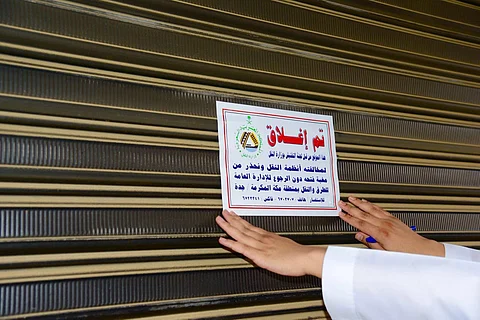 تم إغلاق
هذا الموقع من قبل لجنة التفتيش بوزارة النقل
لمخالفته أنظمة النقل ونحذر من
مغبة فتحه دون الرجوع للإدارة العامة
للطرق والنقل بمنطقة مكة المكرمة - جدة
للاستفسار هاتف: ٦٧٠٣٧٠٧ - فاكس: ٦٧٣٣٢٤١